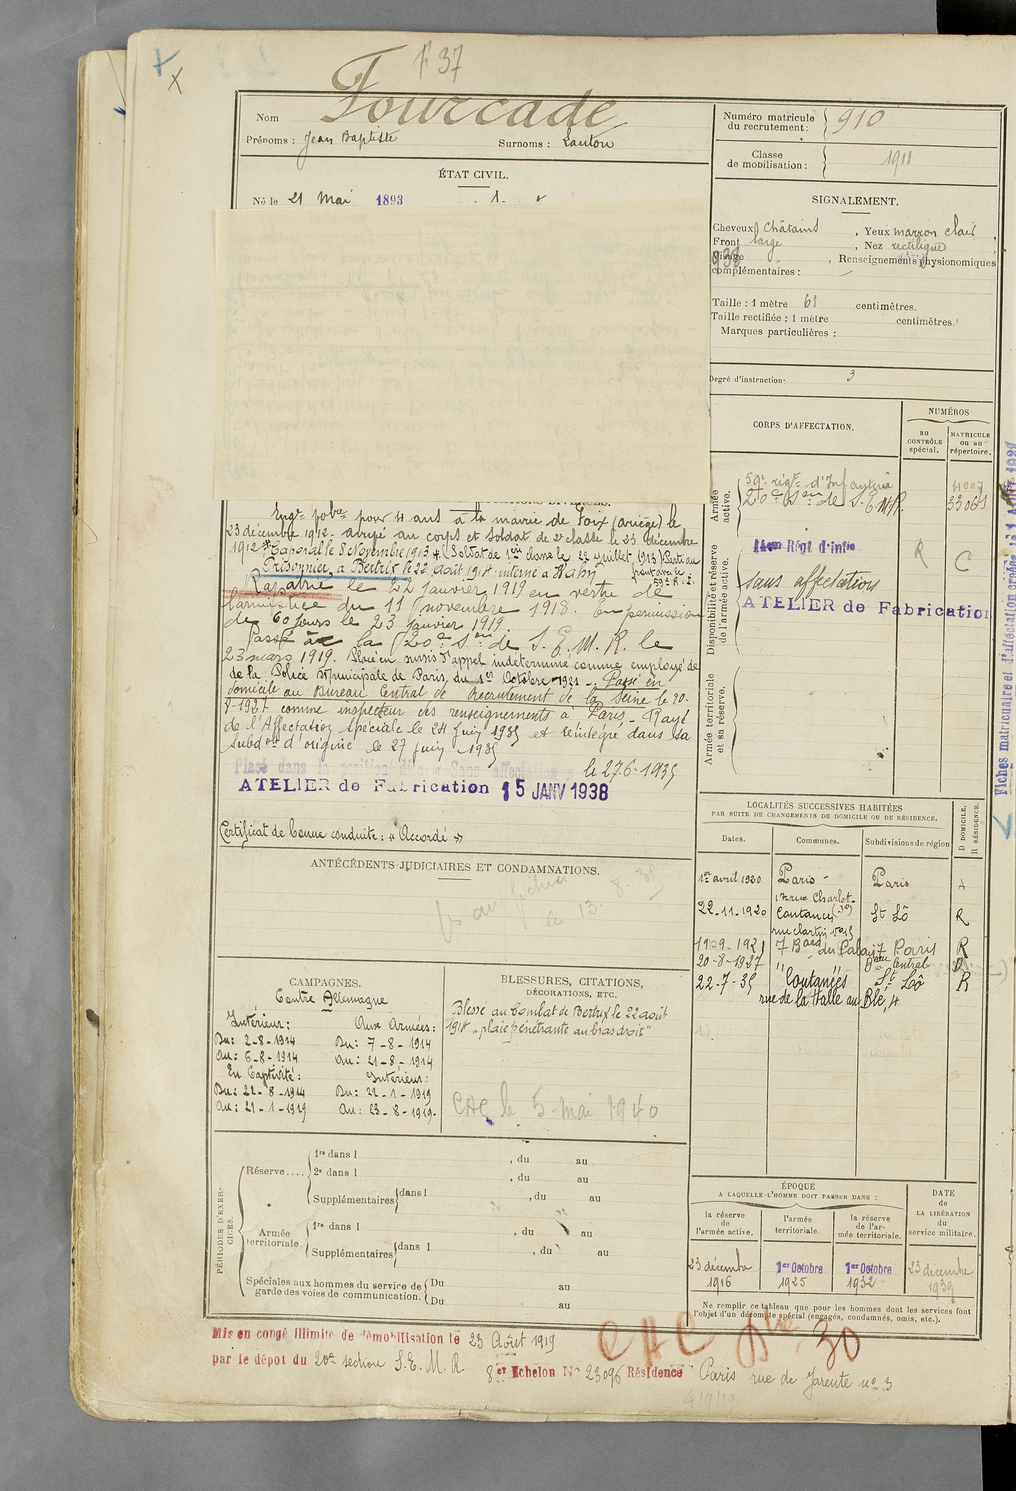 F 37
Nom Fourcade
Prénoms : Jean Baptiste Surnoms : Lauton
Numéro matricule du recrutement : 910
Classe de mobilisation : 1911
ÉTAT CIVIL.
Né le 21 Mai 1893
SIGNALEMENT.
Cheveux châtains , Yeux marron clair ,
Front large , Nez rectiligne
Visage , Renseignements physionomiques
complémentaires :
Taille : 1 mètre 61 centimètres.
Taille rectifiée : 1 mètre centimètres.
Marques particulières :
Degré d'instruction: 3
CORPS D'AFFECTATION.
NUMÉROS
au CONTRÔLE spécial.
MATRICULE ou au répertoire.
Armée active.
59e régt d'Infanterie
20e Son de S.E.M.R.
Disponibilité et réserve de l'armée active.
Régt d'infie
R C
sans affectation
ATELIER de Fabrication
Armée territoriale et sa réserve.
Engé pour 4 ans à la mairie de Foix (Ariège) le
23 décembre 1912. arrivé au corps et soldat de 2e classe le 23 décembre
1912 Caporal le 8 Novembre 1913 (Soldat de 1ère classe le 22 juillet 1913) Parti au
front avec le 59e R.I.
Prisonnier à Bertrix le 22 août 1914 interné à Hahn
Rapatrié le 22 Janvier 1919 en vertu de
l'armistice du 11 novembre 1918. En permission
de 60 jours le 23 Janvier 1919
Passé à la 20e Son de S.E.M.R. le
23 mars 1919. Placé en sursis d'appel indéterminé comme employé de
de la Police Municipale de Paris, du 1er Octobre 1921 - Passé en
domicile au Bureau Central de Recrutement de la Seine le 20-
8-1927 comme inspecteur des renseignements à Paris - Rayé
de l'Affectation Spéciale le 24 juin 1935 et réintégré dans sa
Subdon d'origine le 27 juin 1935
Placé dans la position dite « Sans affectation » le 27-6-1935
ATELIER de Fabrication 15 JANV 1938
Certificat de bonne conduite : « Accordé »
ANTÉCÉDENTS JUDICIAIRES ET CONDAMNATIONS.
LOCALITÉS SUCCESSIVES HABITÉES
PAR SUITE DE CHANGEMENTS DE DOMICILE OU DE RÉSIDENCE.
Dates. Communes. Subdivisions de région D DOMICILE. R RÉSIDENCE.
1er avril 1920 Paris - Paris
17 rue Charlot
22-11-1920 Coutances St Lô R
19-09-1921 7 Bard du Palais Paris R
20-8-1927 " Bau Central D
22-7-35 Coutances St Lô R
rue de la Halle au Blé, 4
CAMPAGNES.
Contre Allemagne
Intérieur : Aux Armées :
Du : 2-8-1914 Du : 7-8-1914
Au : 6-8-1914 Au : 21-8-1914
En Captivité : Intérieur :
Du : 22-8-1914 Du : 22-1-1919
Au : 21-1-1919 Au : 23-8-1919.
BLESSURES, CITATIONS,
DÉCORATIONS, ETC.
Blessé au Combat de Bertrix le 22 août
1914 "plaie pénétrante au bras droit"
CAC le 5 mai 1940
PÉRIODES D'EXERCICES.
Réserve.... 1re dans l , du au
2e dans l , du au
Supplémentaires dans l , du au
Armée territoriale. 1re dans l , du au
Supplémentaires dans l , du au
Spéciales aux hommes du service de garde des voies de communication. Du au
Du au
ÉPOQUE
A LAQUELLE L'HOMME DOIT PASSER DANS :
la réserve de l'armée active.
l'armée territoriale.
la réserve de l'armée territoriale.
DATE de LA LIBÉRATION du service militaire.
23 décembre 1916
1er Octobre 1925
1er Octobre 1932
23 décembre 1939
Ne remplir ce tableau que pour les hommes dont les services font
l'objet d'un décompte spécial (engagés, condamnés, omis, etc.).
Mis en congé illimité de démobilisation le 23 Août 1919
par le dépôt du 20e section S.E.M.R
8er Echelon No 23096 Résidence Paris rue de Jarente no 3
CAC 30